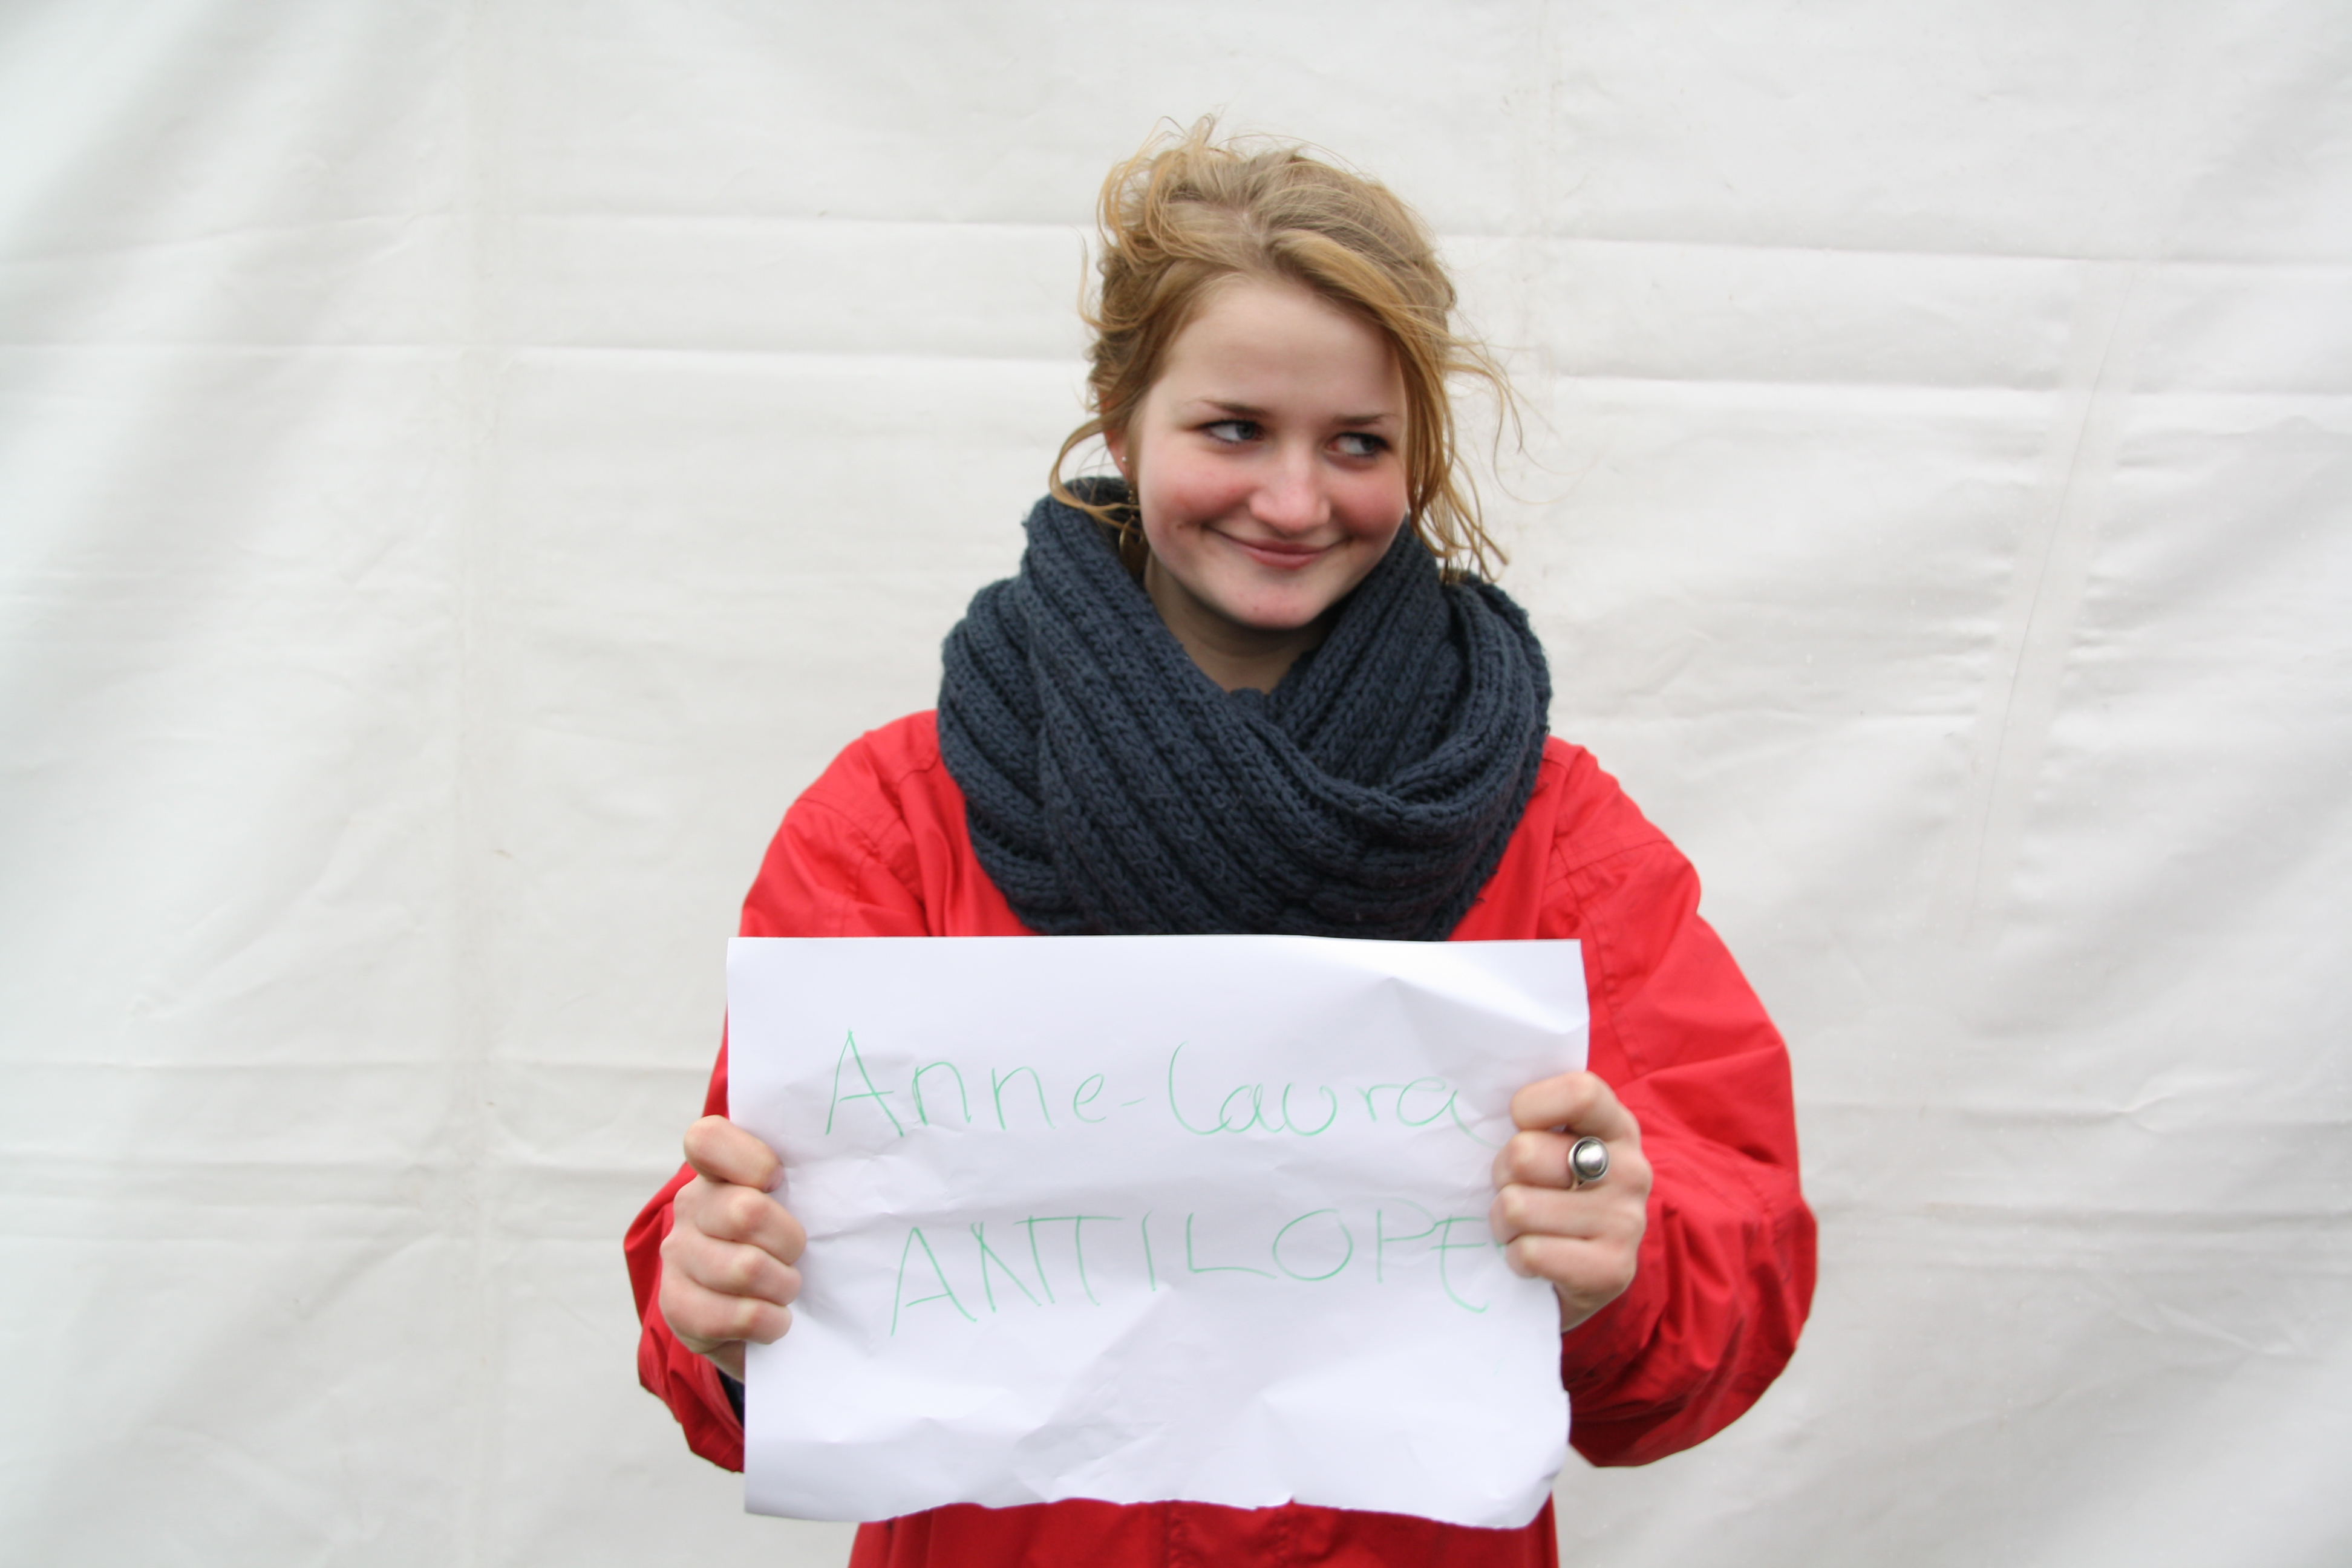 Anne-Laura
ANTILOPE